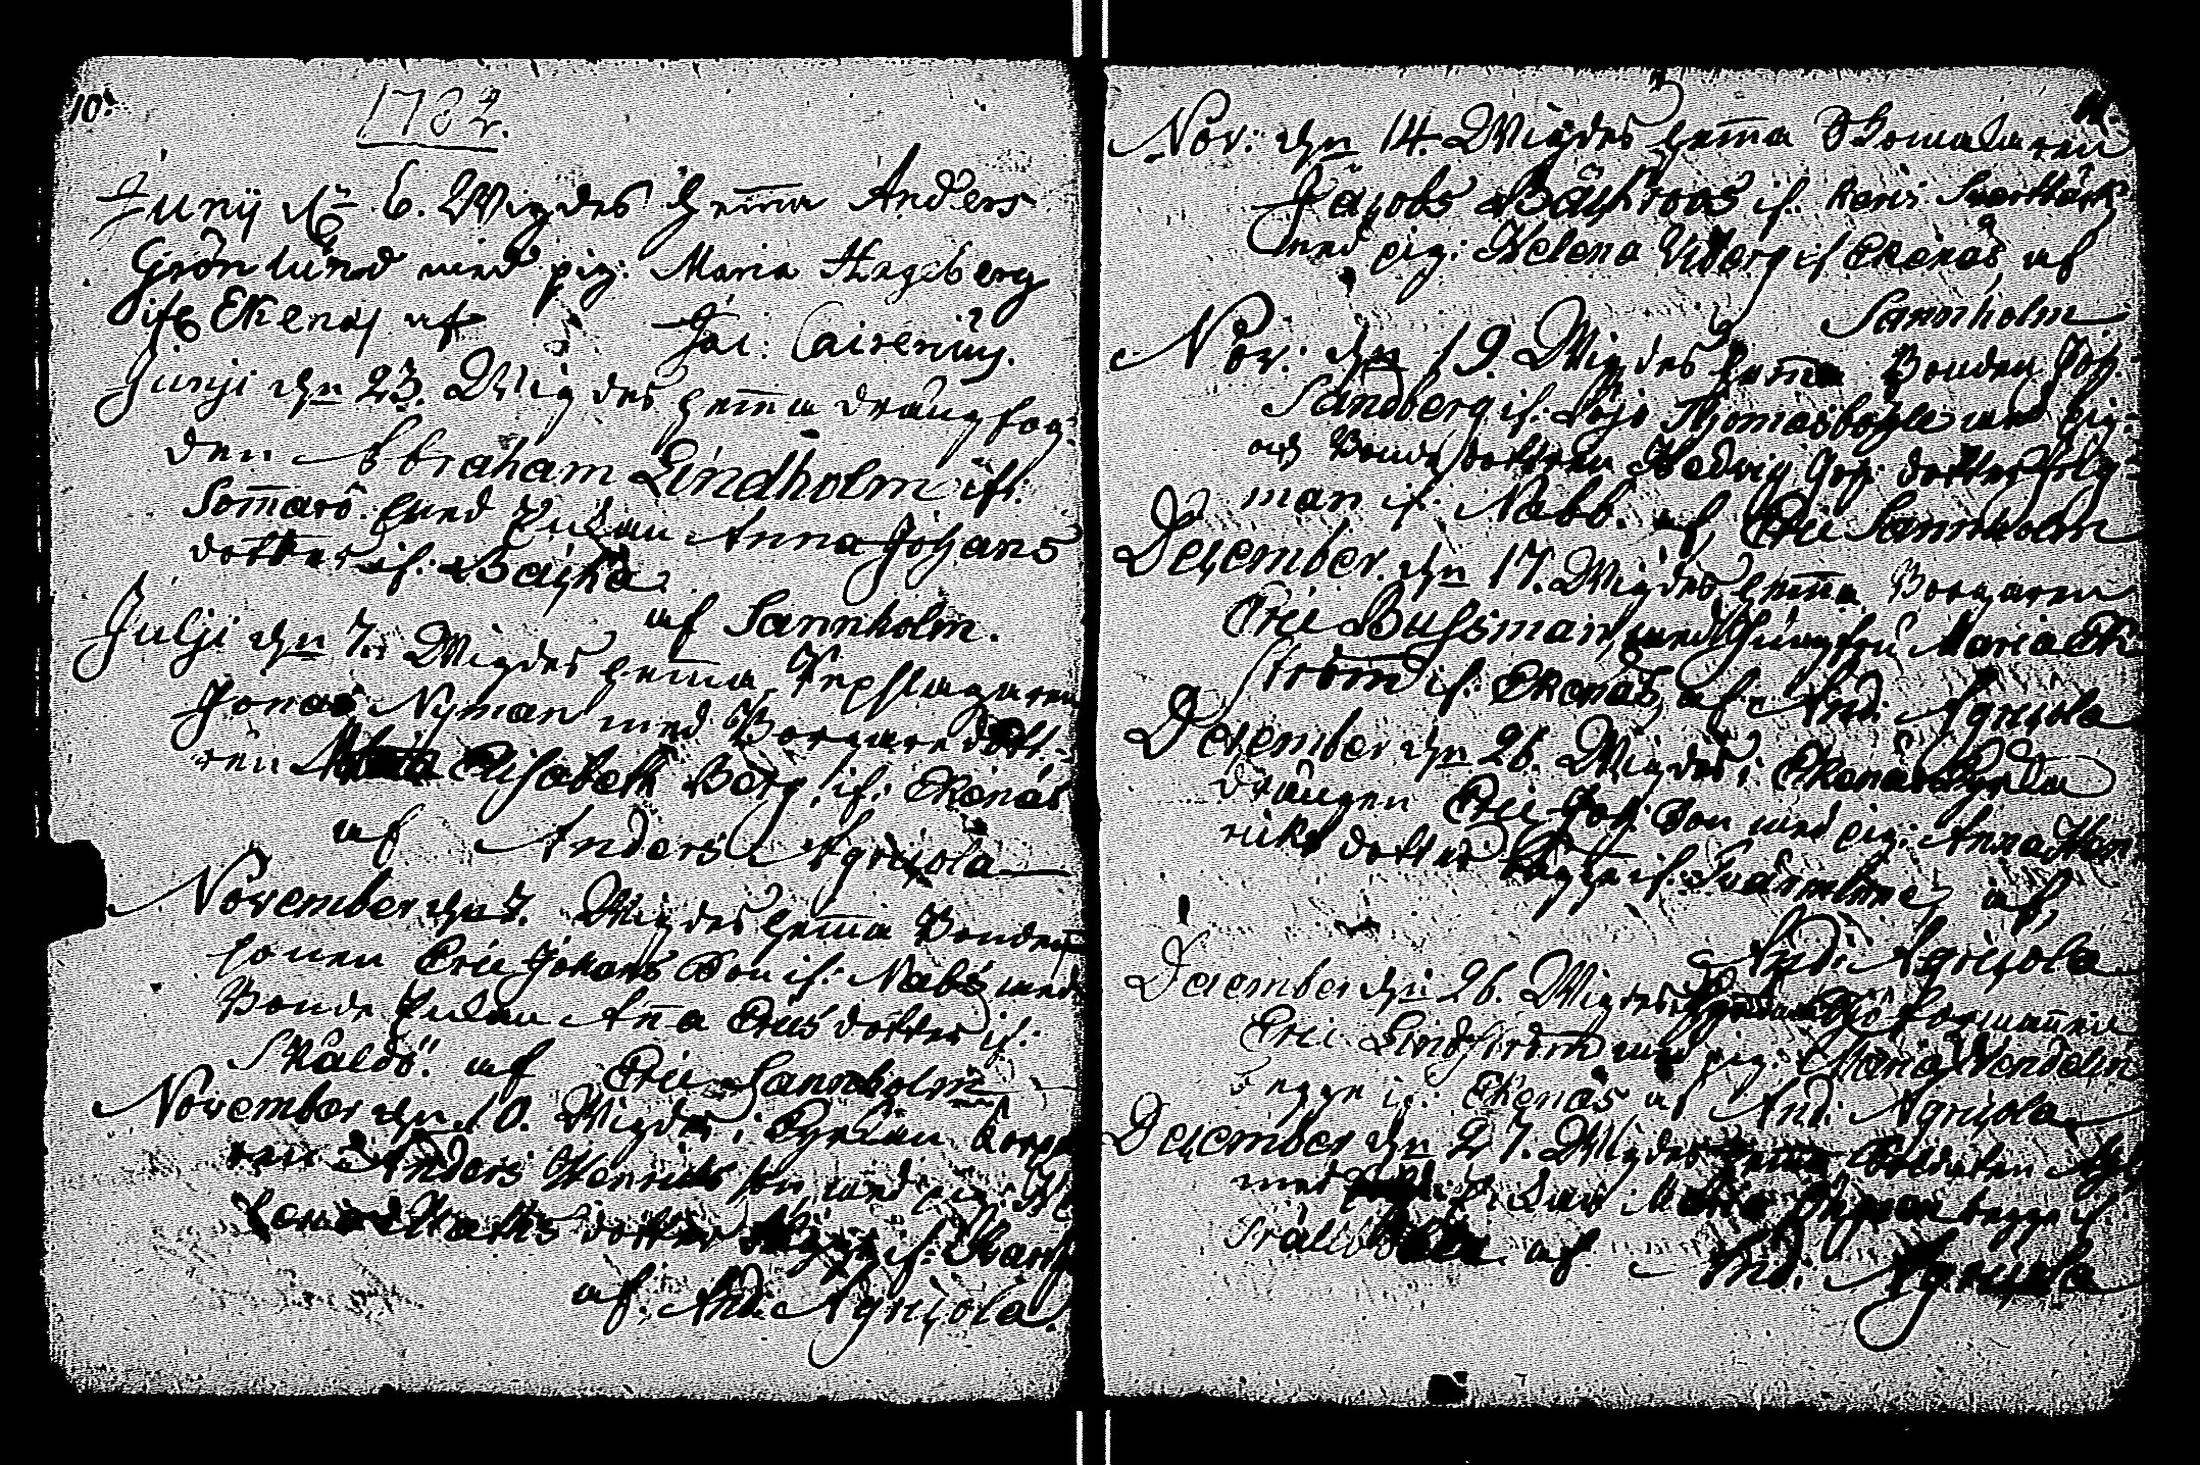 10.
1782.
Junij d. 6. Wigdes hema Anders
Grönlund med pig: Maria Hageberg
ifr Ekenäs af Jac: Cairenius.
Junji den 23. Wigdes hema drängsog
den Abraham Lindholm ifr:
Somarö med Enkan Anna Johans
dotter if:
af Sannholm.
Julji den 7. Wigdes hema Repslagaren
Jonas Nyman med Borgaredott-
ren Elisabeth Berg, if: Ekenäs
af Anders Agricola
November den 7. Wigdes hema Bonde
sonen Eric Johans Son if: Nabb med
Bonde Enkan Ana Erics dotter if:
Skåldö: af Eric Sannholm
November den 10. Wigdes i Kyrkan
Anders Henrics son med pig: He
lena Matts dotter if:
af: And: Agricola.
Nov: den 14. Wigdes hema Skomakaren
Jacobs if: Karis Svartbäck
med pig: Helena Wiberg if Ekenäs af
Sannholm
Nov: den 19. Wigdes hema Bonden Joh:
Sandberg if: Lojo Thomasböhle med
Bonde dottren Hedvig Joh: dotter
man if: Nabb. af Eric Sannholm
December. den 17. Wigdes hema Borgaren
Eric Bussman med Jungfru Maria Ek
ström if: Ekenäs af And: Agricola
December den 26. Wigdes i Ekenäs Kyrka
drängen Eric Joh: Son med pig: Anna Hen
riks dotter begge if: Tvärminne af
And: Agricola
December den 26. Wigdes
Eric Lindström med pig: Maria Wendelin
begge if: Ekenäs af And: Agricola
December den 27. Wigdes hema Soldaten
med Enkan begge if
af And: Agricola